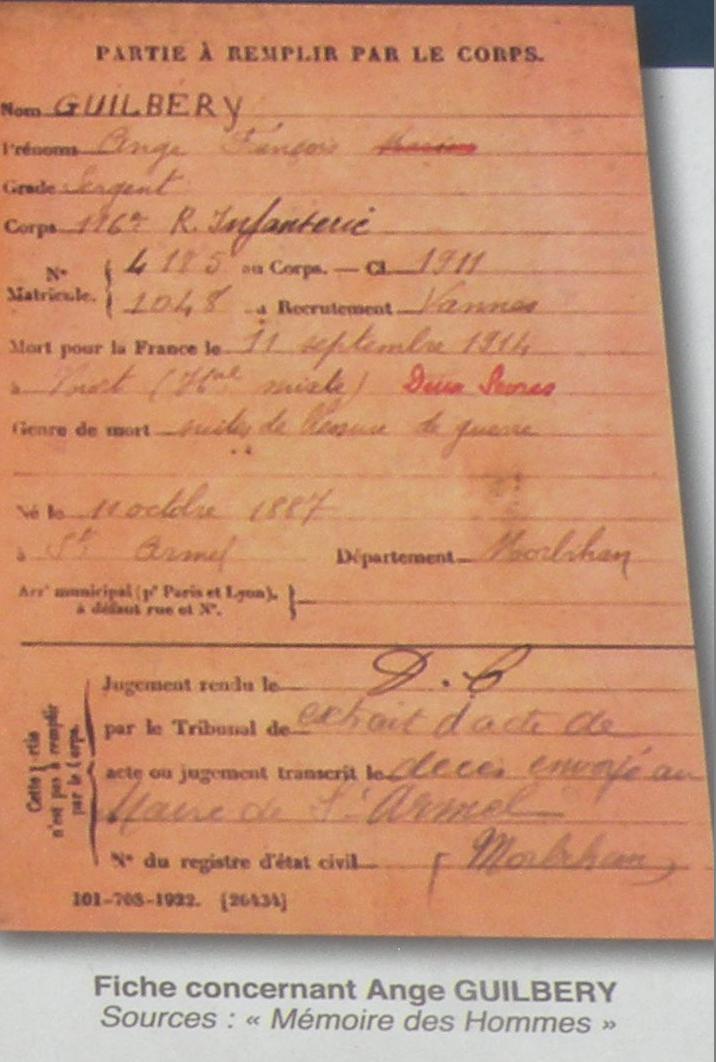 PARTIE À REMPLIR PAR LE CORPS.
Nom GUILBERY
Prénoms Ange François Marie
Grade Sergent
Corps 116e R. Infanterie
Nº Matricule. { 4185 au Corps. — Cl. 1911
1048 a Recrutement Vannes
Mort pour la France le 11 septembre 1914
à Niort (Hal mixte) Deux Sevres
Genre de mort suites de blessure de guerre
Né le 11 octobre 1887
à St Armel Département Morbihan
Arrt municipal (pr Paris et Lyon), à défaut rue et Nº. }
Cette partie n'est pas à remplir par le Corps.
Jugement rendu le D.C
par le Tribunal de extrait d'acte de
acte ou jugement transcrit le décès envoyé au
Maire de St Armel
Nº du registre d'état civil (Morbihan)
101-708-1922. [26434]
Fiche concernant Ange GUILBERY
Sources : « Mémoire des Hommes »